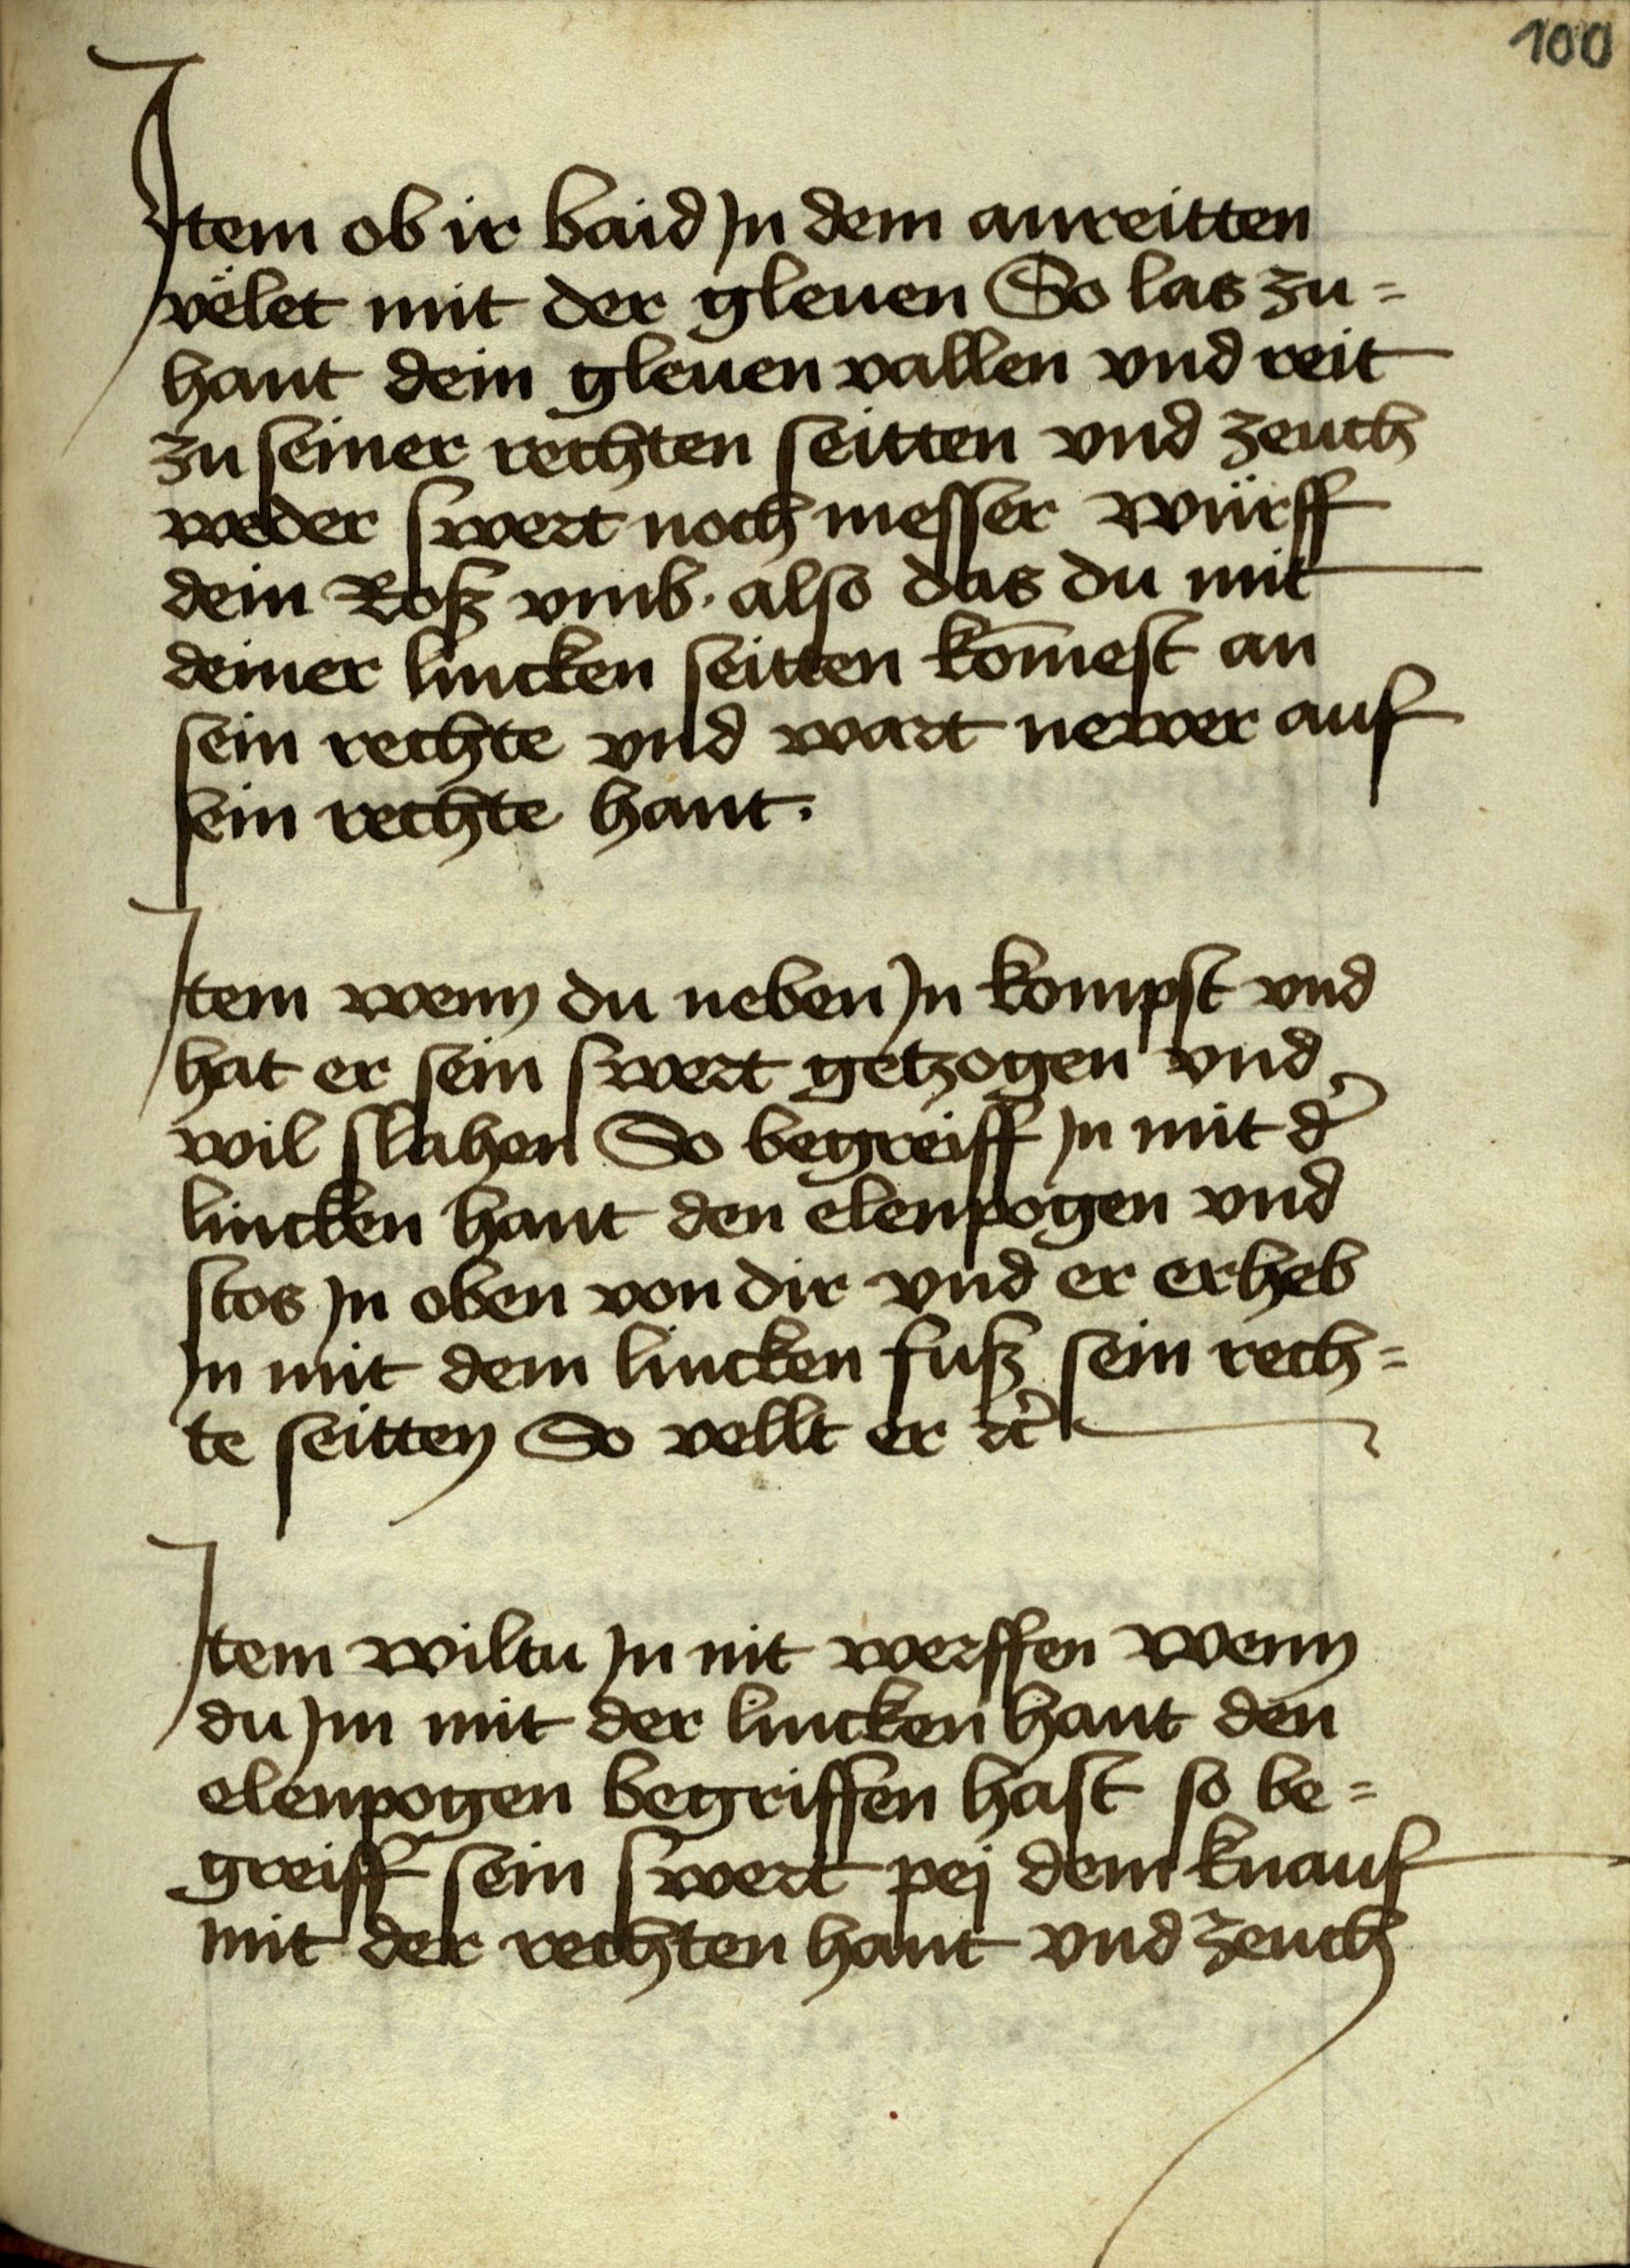 100
Item ob ir baid In dem anreitten
vëlet mit der gleuen So las zu=
hant dein gleuen vallen vnd reit
zu seiner rechten seitten vnd zeuch
weder swert noch messer würff
dein Roß vmb · also das du mit
deiner lincken seitten kom̄est an
sein rechte vnd wart newer auf
sein rechte hant ·
Item wenn du neben In kompst vnd
hat er sein swert getzogen vnd
wil slahen So begreiff In mit d̛
lincken hant den elenpogen vnd
stos In oben von dir vnd er erheb
In mit dem lincken fuß sein rech=
te seitten So vellt er rc̃
Item wiltu In nit werffen wenn
du Im mit der lincken hant den
elenpogen begriffen hast so be=
greiff sein swert pej dem knauf
mit der rechten hant vnd zeuch